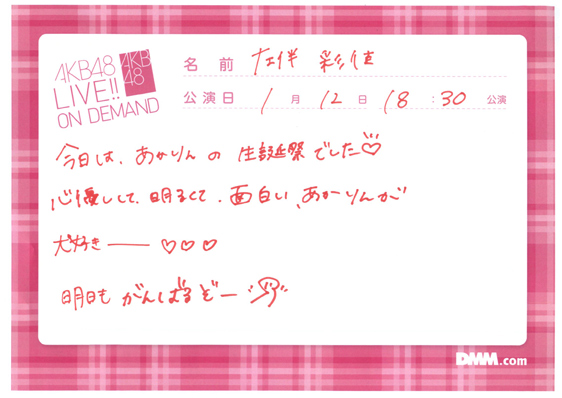 AKB48
LIVE!!
ON DEMAND
AKB
48
名前 左伴 彩佳
公演日 1月 12日 18:30 公演
今日は、あかりんの 生誕祭でした♡
心優しくて、明るくて、面白い、あかりんが
大好きー ♡♡♡
明日も がんばるぞー
DMM.com